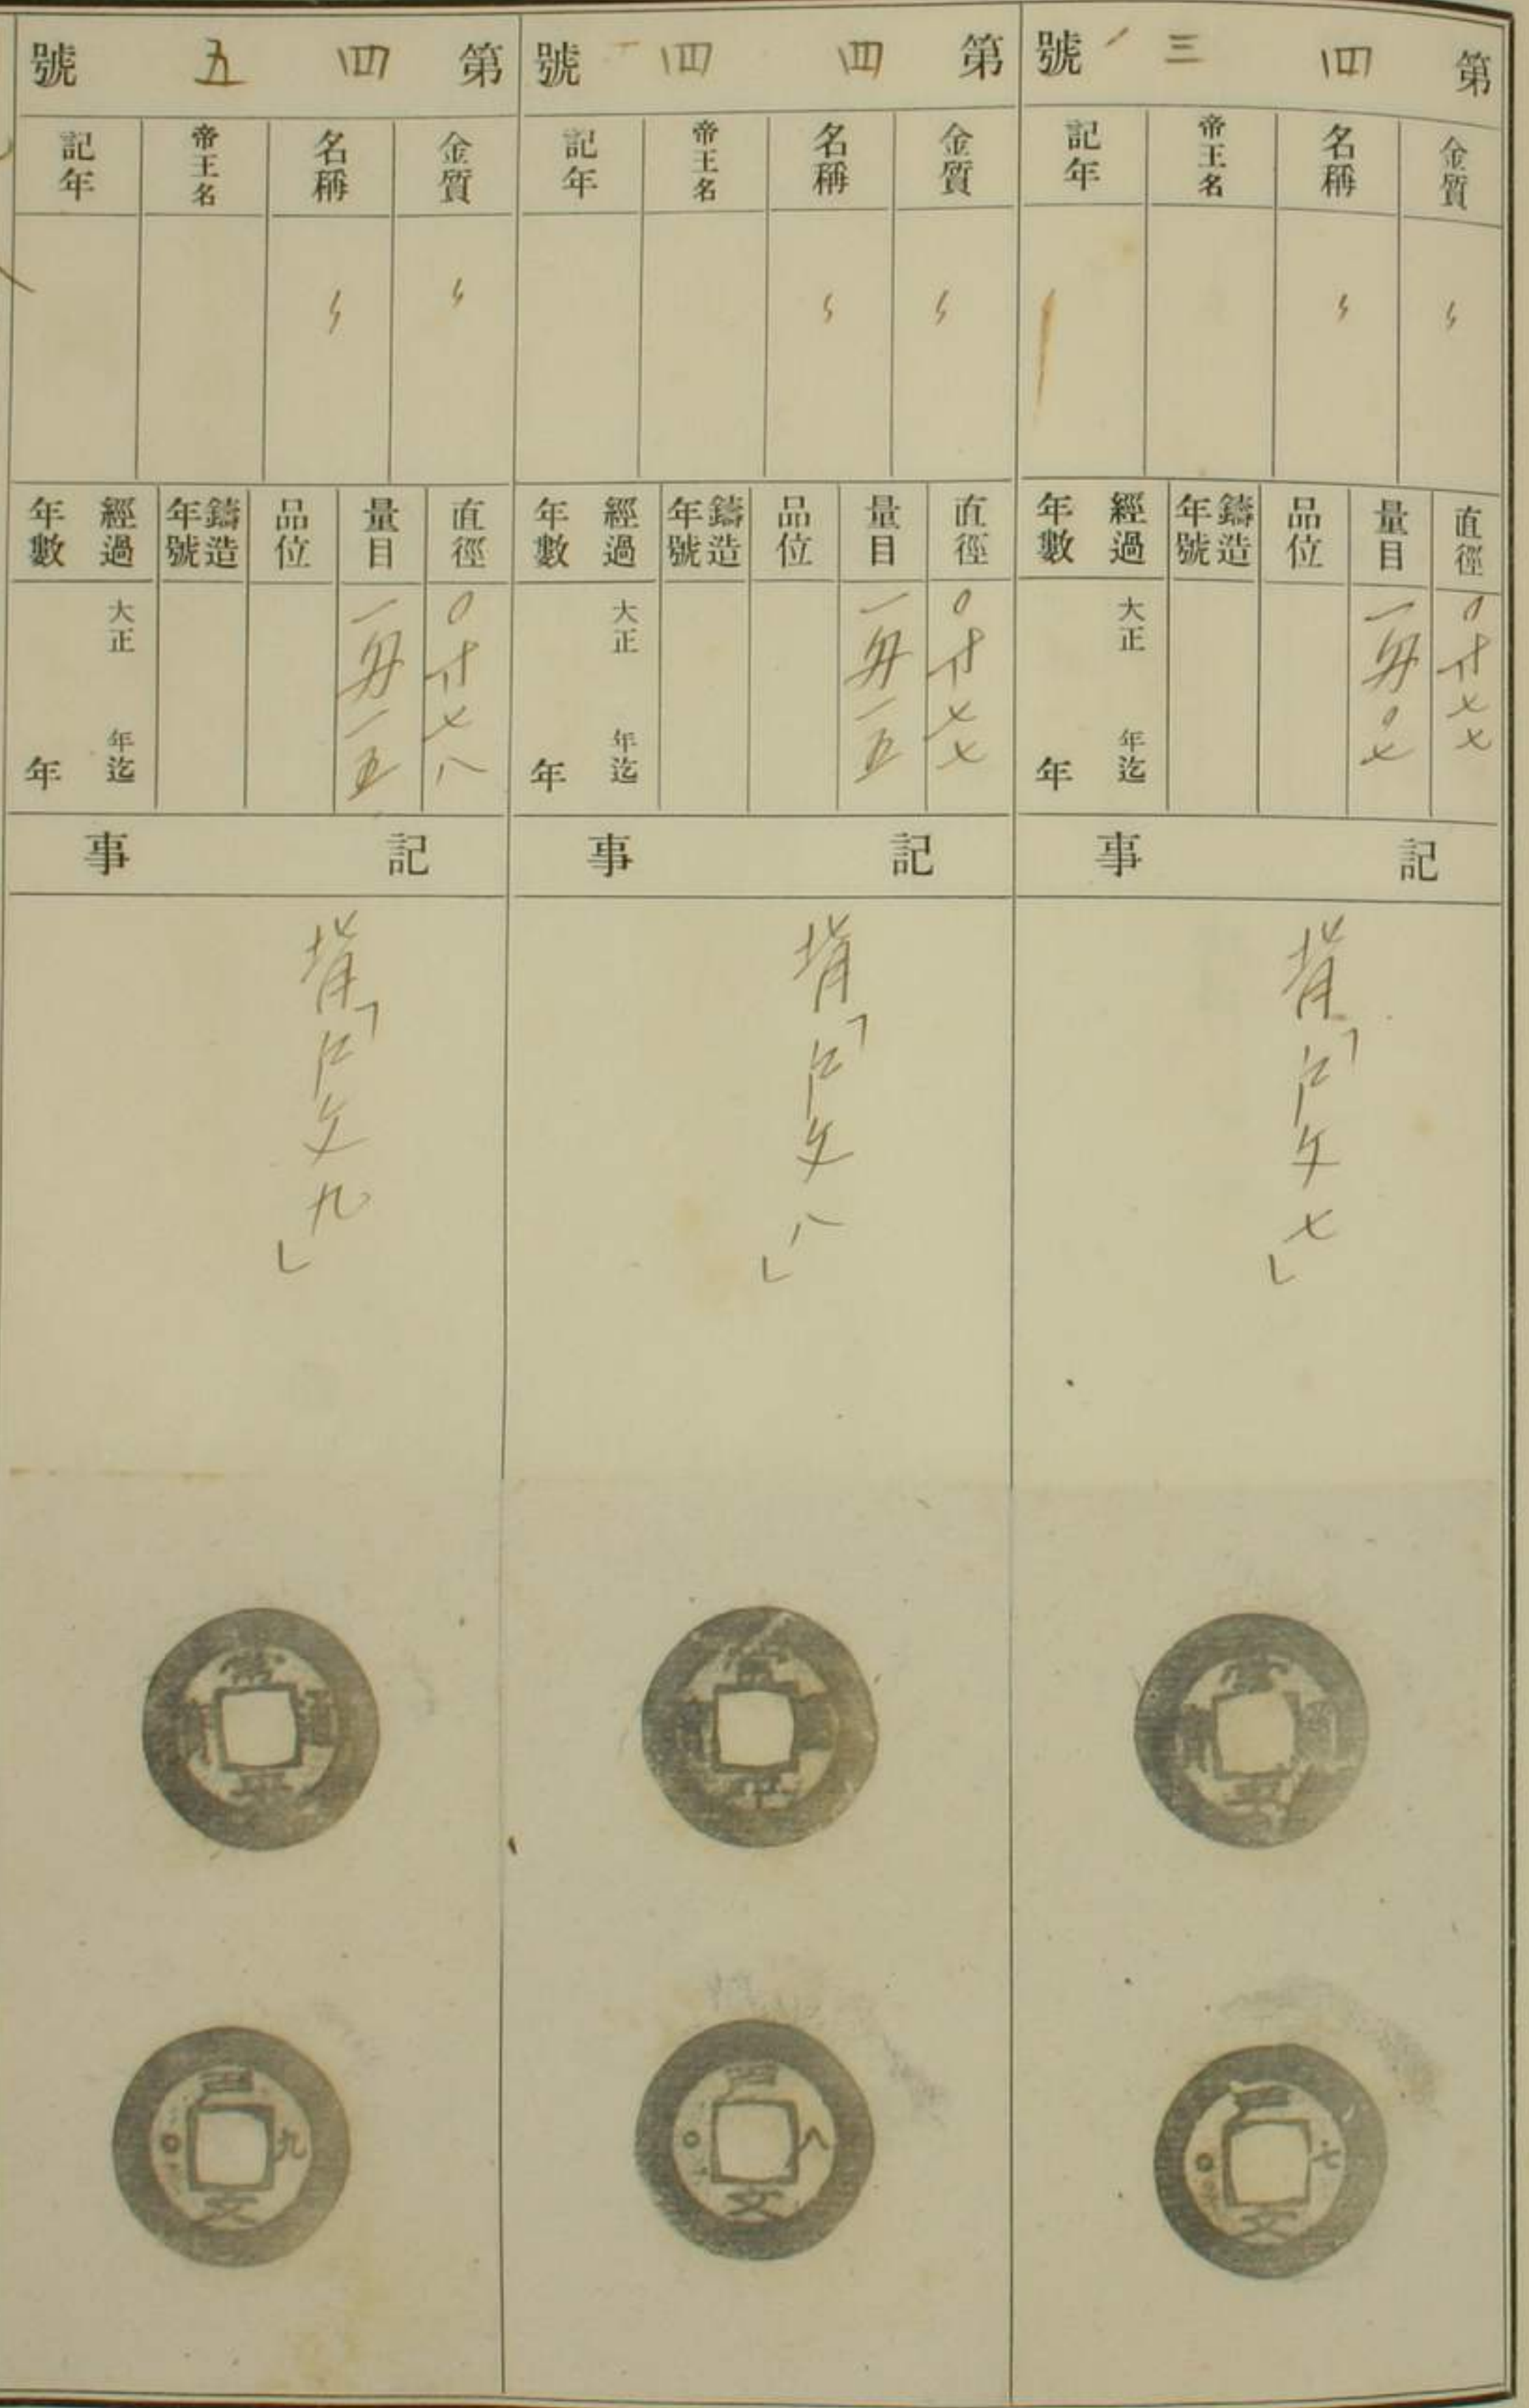 第四三號
金質
名稱
帝王名
記年
〃
〃
直徑
量目
品位
鑄造年號
經過年數
0寸七七
一匁0七
大正 年迄
年
記事
背「戶文七」
常平通寶
戶文七
第四四號
金質
名稱
帝王名
記年
〃
〃
直徑
量目
品位
鑄造年號
經過年數
0寸七七
一匁一五
大正 年迄
年
記事
背「戶文八」
常平通寶
戶文八
第四五號
金質
名稱
帝王名
記年
〃
〃
直徑
量目
品位
鑄造年號
經過年數
0寸七八
一匁一五
大正 年迄
年
記事
背「戶文九」
常平通寶
戶文九